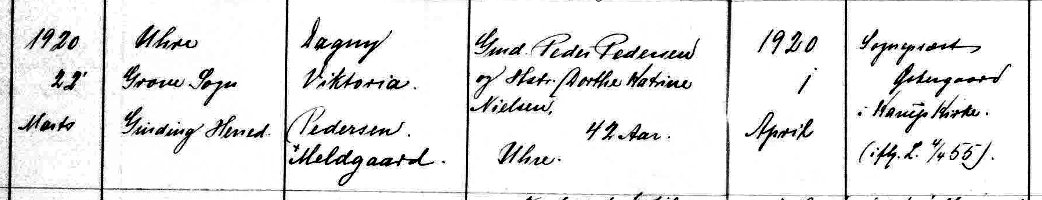 1920
22'
Marts
Uhre
Grove Sogn
Ginding Herred.
Dagny
Viktoria.
Pedersen.
Meldgaard.
Gmd. Peder Pedersen
og Hstr. Dorthe Katrine
Nielsen,
42 Aar.
Uhre.
1920
April
Sognepræst
Østergaard
i Karup Kirke.